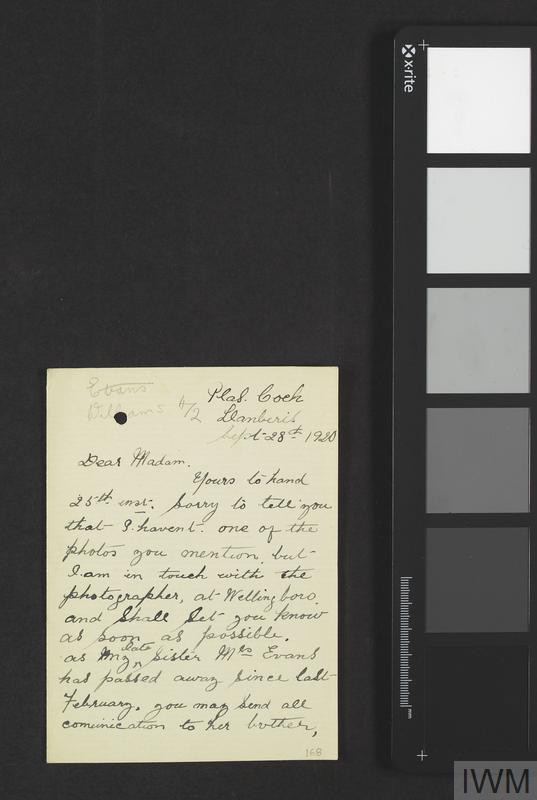 x·rite
Evans
Williams
4/2
Plas. Coch
Llanberis
Sept 28th 1920
Dear Madam.
Yours to hand
25th inst. Sorry to tell you
that I havent. one of the
photos you mention. but
I.am in touch with the
photographer, at Wellingboro.
and Shall Let you know
as soon as possible.
as my late sister Mrs Evans
has passed away since last
February. you may send all
comunication to her brother,
168
mm
IWM